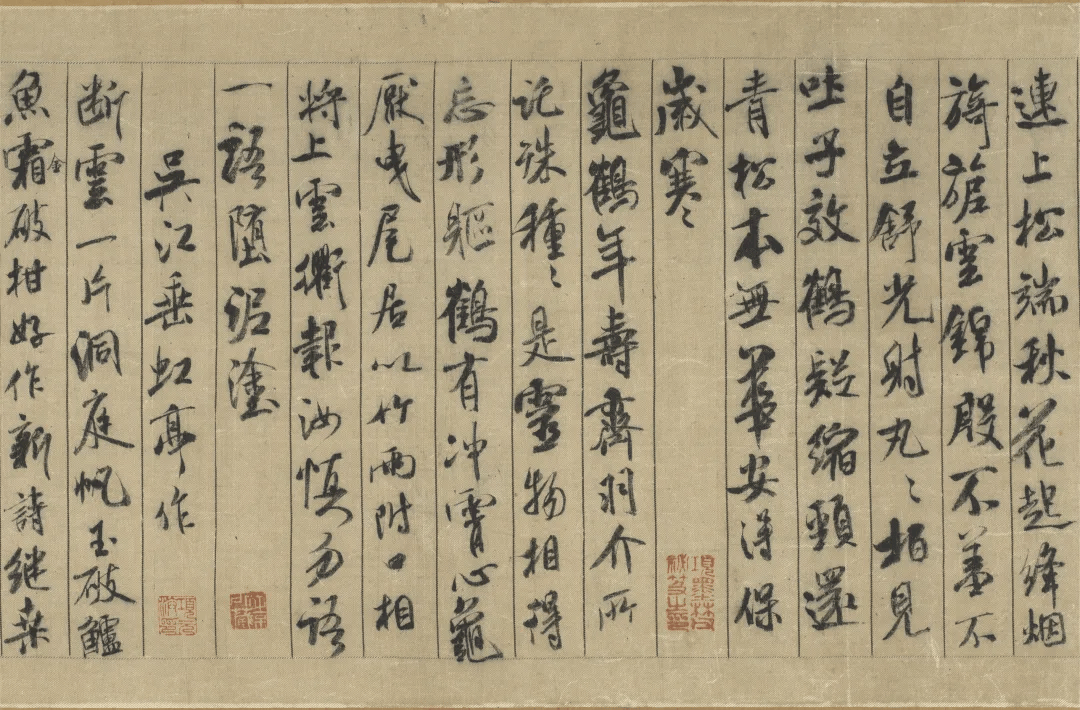 連上松端秋花起絳烟
旖旎雲錦殷不羞不
自立舒光射丸〻柏見
吐子效鶴疑縮頸還
青松本無華安得保
歲寒
龜鶴年壽齊羽介所
託殊種〻是靈物相得
忘形軀鶴有沖霄心龜
厭曳尾居以竹兩附口相
將上雲衢報汝慎勿語
一語墮泥塗
吳江垂虹亭作
断雲一片洞庭帆玉破鱸
魚霜金破柑好作新詩継桒